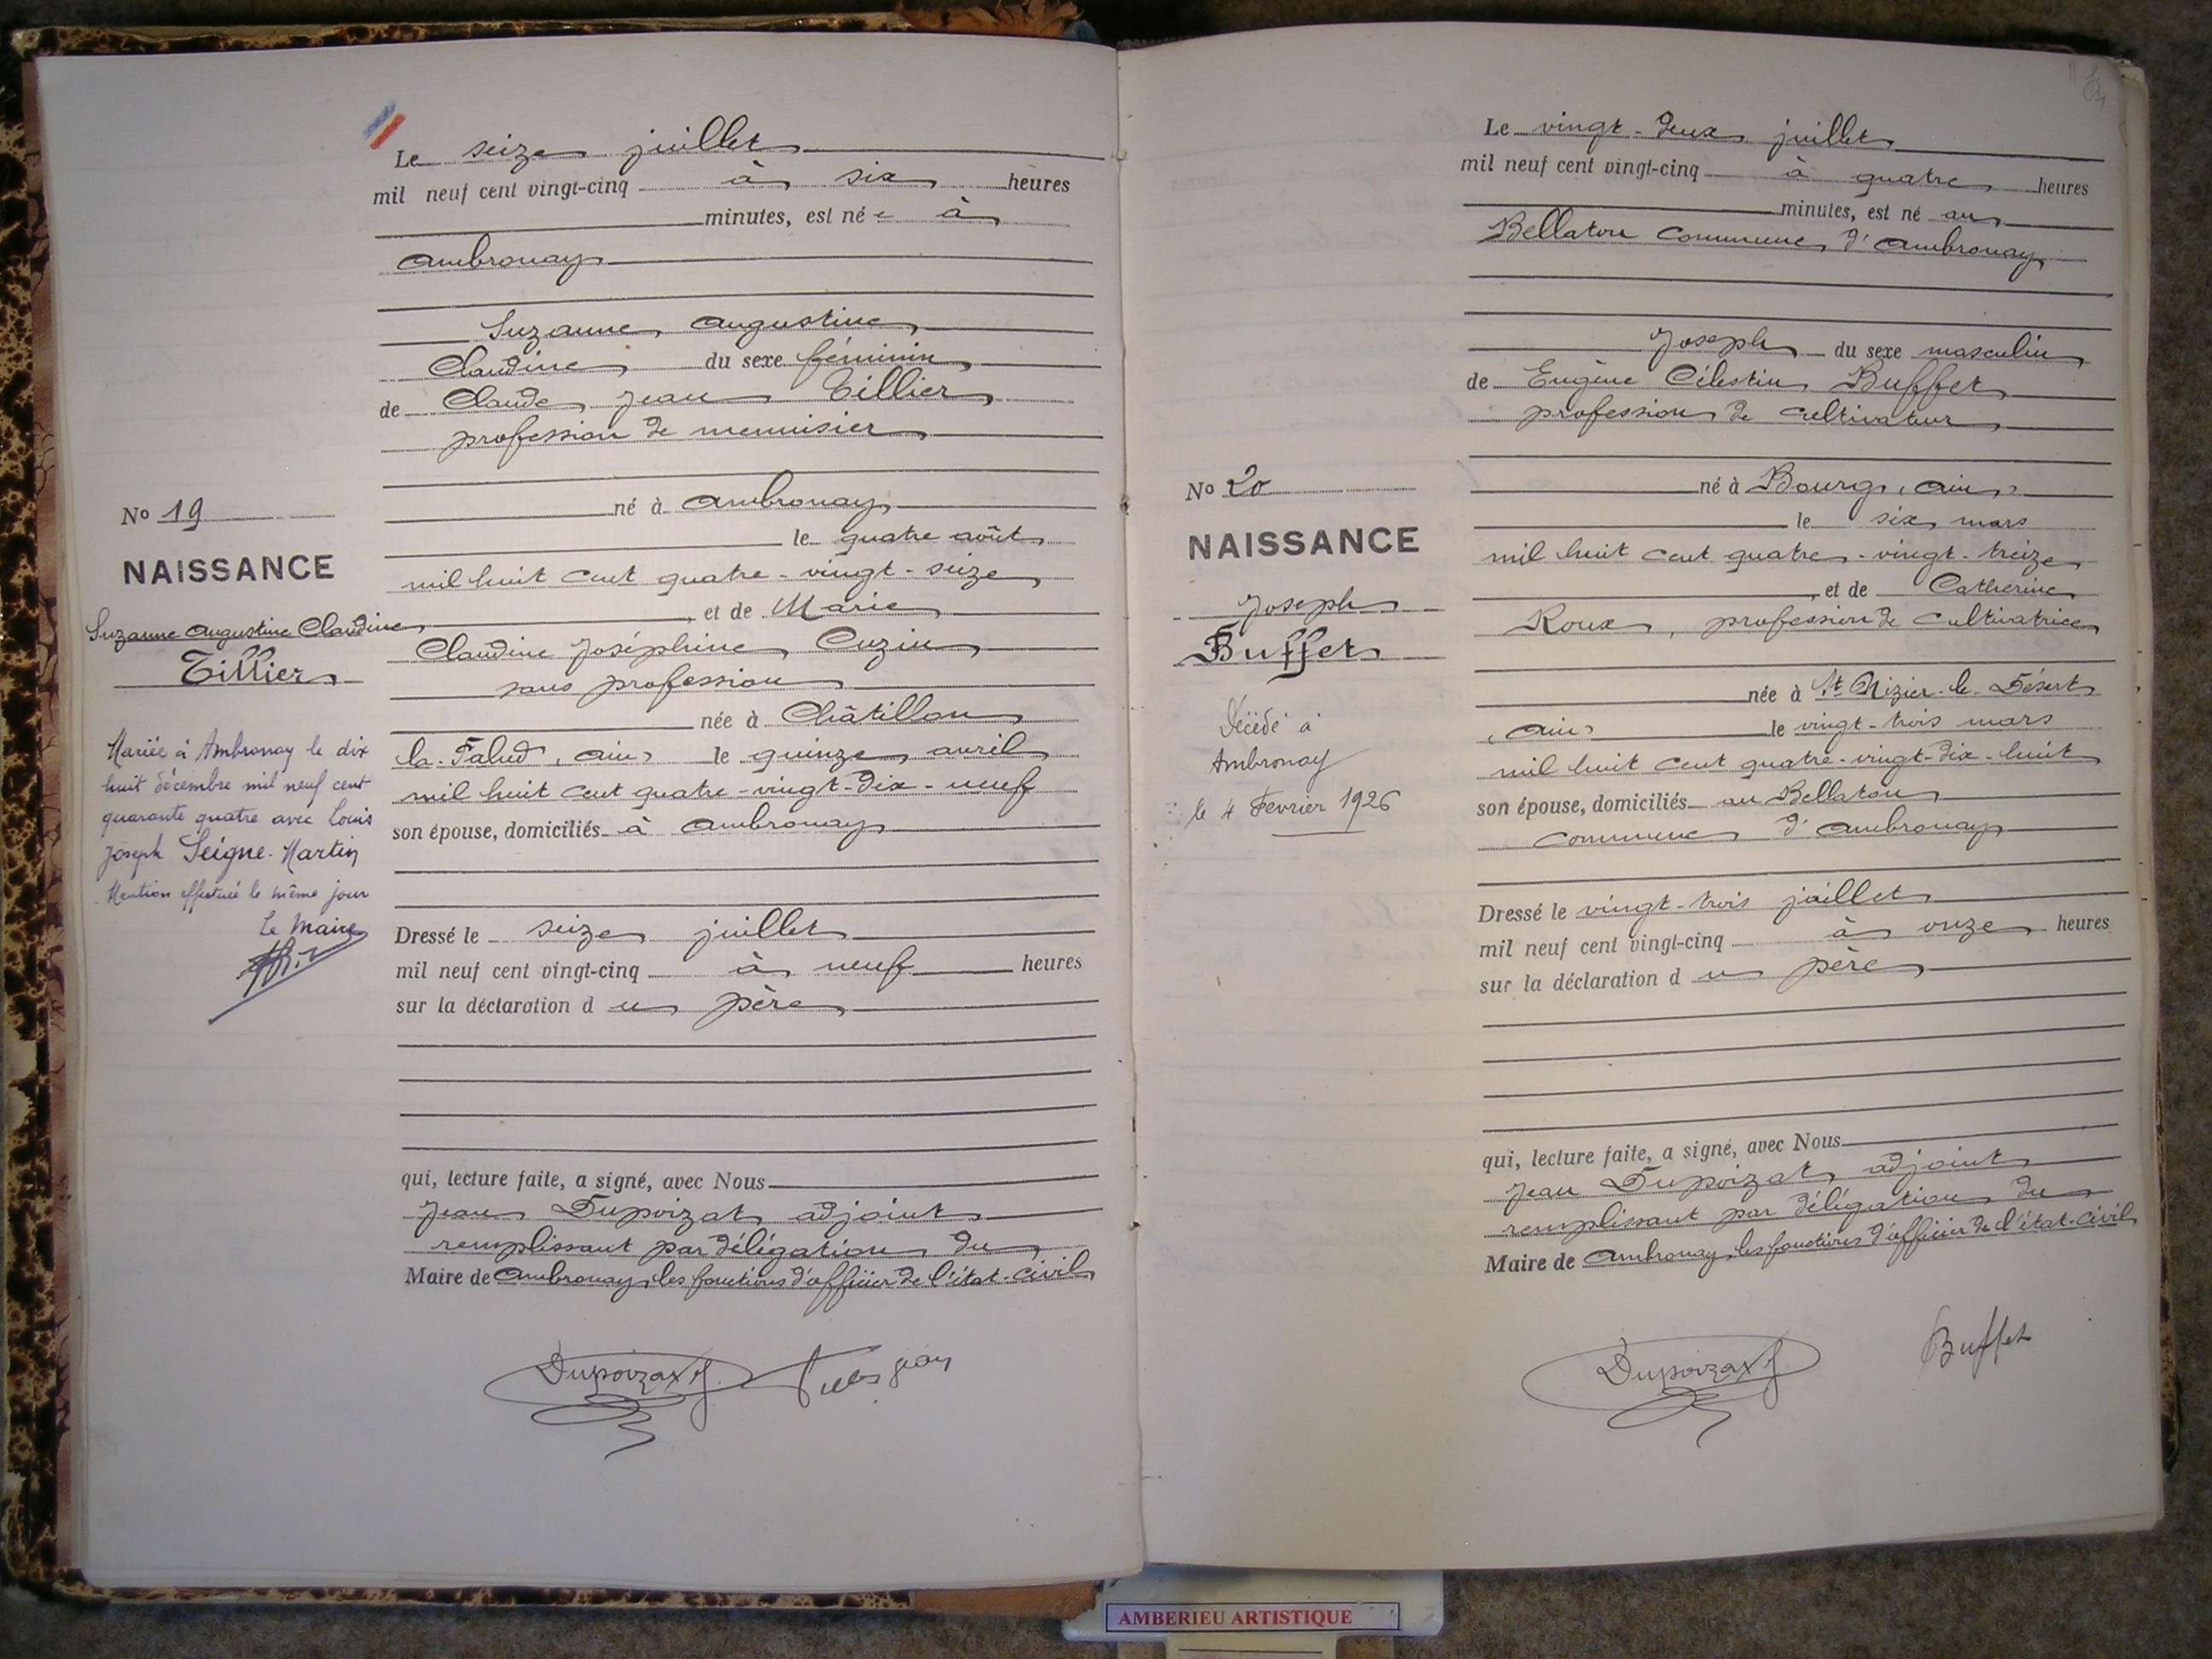 Le seize juillet
mil neuf cent vingt-cinq à six heures
minutes, est né e à
Ambronay
Suzanne Augustine
Claudine du sexe féminin
de Claude Jean Tillier
profession de menuisier
né à Ambronay
le quatre août
mil huit cent quatre-vingt-seize
, et de Marie
Claudine Joséphine Cuzin
sans profession
née à Châtillon
la-Palud, Ain, le quinze avril
mil huit cent quatre-vingt-dix-neuf
son épouse, domiciliés à Ambronay
Dressé le seize juillet
mil neuf cent vingt-cinq à neuf heures
sur la déclaration d u père
qui, lecture faite, a signé, avec Nous
Jean Dupoizat adjoint
remplissant par délégation du
Maire de Ambronay, les fonctions d'officier de l'état-civil
Dupoizat J.
No 19
NAISSANCE
Suzanne Augustine Claudine
Tillier
Mariée à Ambronay le dix
huit décembre mil neuf cent
quarante quatre avec Louis
Joseph Seigne-Martin
Mention effectuée le même jour
Le Maire
Le vingt-deux juillet
mil neuf cent vingt-cinq à quatre heures
minutes, est né au
Bellaton commune d'Ambronay
Joseph du sexe masculin
de Eugène Célestin Buffet
profession de cultivateur
né à Bourg, Ain,
le six mars
mil huit cent quatre-vingt-treize
, et de Catherine
Roux, profession de cultivatrice
née à St Nizier-le-Désert
, Ain, le vingt-trois mars
mil huit cent quatre-vingt-dix-huit
son épouse, domiciliés au Bellaton
commune d'Ambronay
Dressé le vingt-trois juillet
mil neuf cent vingt-cinq à onze heures
sur la déclaration d u père
qui, lecture faite, a signé, avec Nous
Jean Dupoizat adjoint
remplissant par délégation du
Maire de Ambronay, les fonctions d'officier de l'état-civil
Dupoizat J. Buffet
No 20
NAISSANCE
Joseph
Buffet
Décédé à
Ambronay
le 4 Fevrier 1926
AMBERIEU ARTISTIQUE